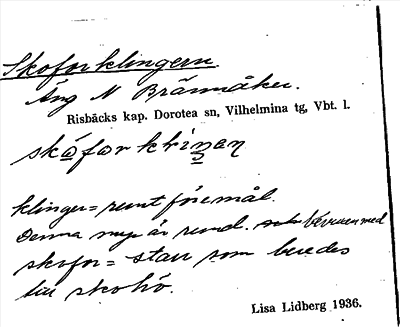 Skoforklingern
Äng N Brännåker.
Risbäcks kap. Dorotea sn, Vilhelmina tg, Vbt. l.
skåforkliŋaŋ
klinger = runt föremål.
Denna myr är rund. bevuxen med
skofor = starr som bereddes
till skohö.
Lisa Lidberg 1936.